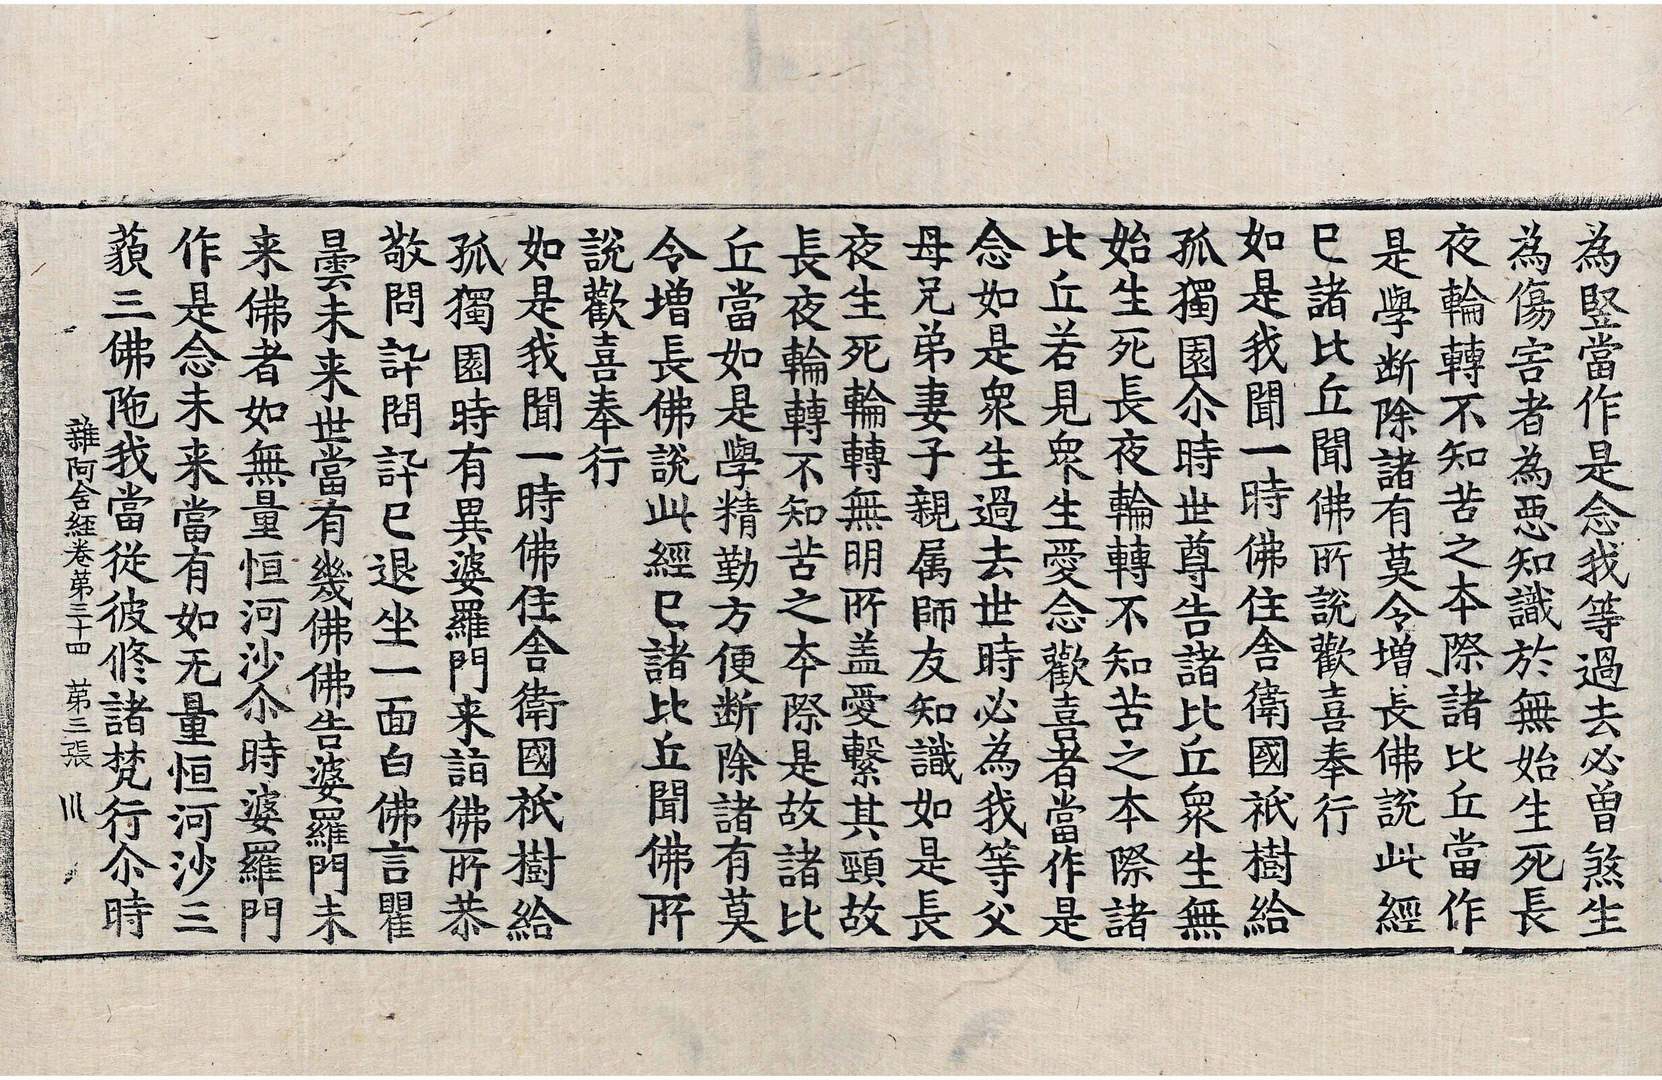 為竪當作是念我等過去必曾煞生
為傷害者為惡知識於無始生死長
夜輪轉不知苦之本際諸比丘當作
是學断除諸有莫令增長佛說此經
已諸比丘聞佛所說歡喜奉行
如是我聞一時佛住舍衛國祇樹給
孤獨園尒時世尊告諸比丘衆生無
始生死長夜輪轉不知苦之本際諸
比丘若見衆生愛念歡喜者當作是
念如是衆生過去世時必為我等父
母兄弟妻子親属師友知識如是長
夜生死輪轉無明所盖愛繫其頸故
長夜輪轉不知苦之本際是故諸比
丘當如是學精勤方便断除諸有莫
令增長佛說此經已諸比丘聞佛所
說歡喜奉行
如是我聞一時佛住舍衛國祇樹給
孤獨園時有異婆羅門来詣佛所恭
敬問訊問訊已退坐一面白佛言瞿
曇未来世當有幾佛佛告婆羅門未
来佛者如無量恒河沙尒時婆羅門
作是念未来當有如无量恒河沙三
藐三佛陁我當從彼修諸梵行尒時
雜阿含經卷第三十四 第三張 川